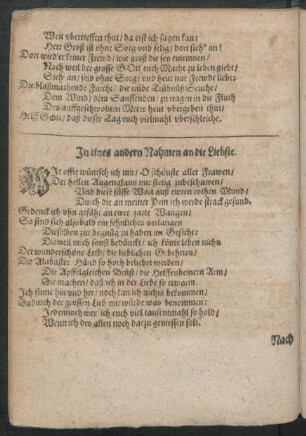 Weit vbertreffen thut / da erst ich sagen kan:
Herr Groß ist ohne Sorg vnd selig / dort sich's an!
Dort wird er seiner Frewd / wie groß die sey ennnnen /
Noch weil der grosse GOtt euch Macht zu leben giebt /
Sieh an / seyd ohne Sorg / vnd heut nur Frewde liebt:
Die blaßmachende Furcht / die müde Trübnüß Seuche /
Dem Wind / dem Sausstenden / zu wagen in die Fluth
Des auffgeschwollnen Meers heut vbergeben thut /
Helff Gott / daß dieser Tag euch vielmahl vberschleiche.
In eines andern Nahmen an die Liebste.
WIe offte wüntsch ich mir / O schönste aller Frawen /
Der hellen Augenglantz nur stetig zubeschawen /
Vnd diese süsse Wort auß ewren rothen Mund /
Durch die an meiner Pein ich werde strack gesund.
Gedenck ich ohn gefähr an ewer zarte Wangen /
So sind sich alsobald ein sehnliches verlangen
Dieselben zur begnüg zu haben im Gesicht:
Dieweil mich sonst bedünckt / ich könte leben nicht
Der wunderschöne Leib / die lieblichen Geberden /
Die Alabaster Händ so hoch beliebet werden /
Die Apffelgleichen Brüst / die Helffenbeinern Arm /
Sie machen / daß ich in der Liebe so erwarm.
Ich sinne hin vnd her / noch kan ich nichts bekommen /
Dadurch der grossen Lieb mir würde was benommen:
Jedennoch wer ich euch viel tausentmahl so hold /
Wenn ich des allen noch darzu geniessen solt.
Nach